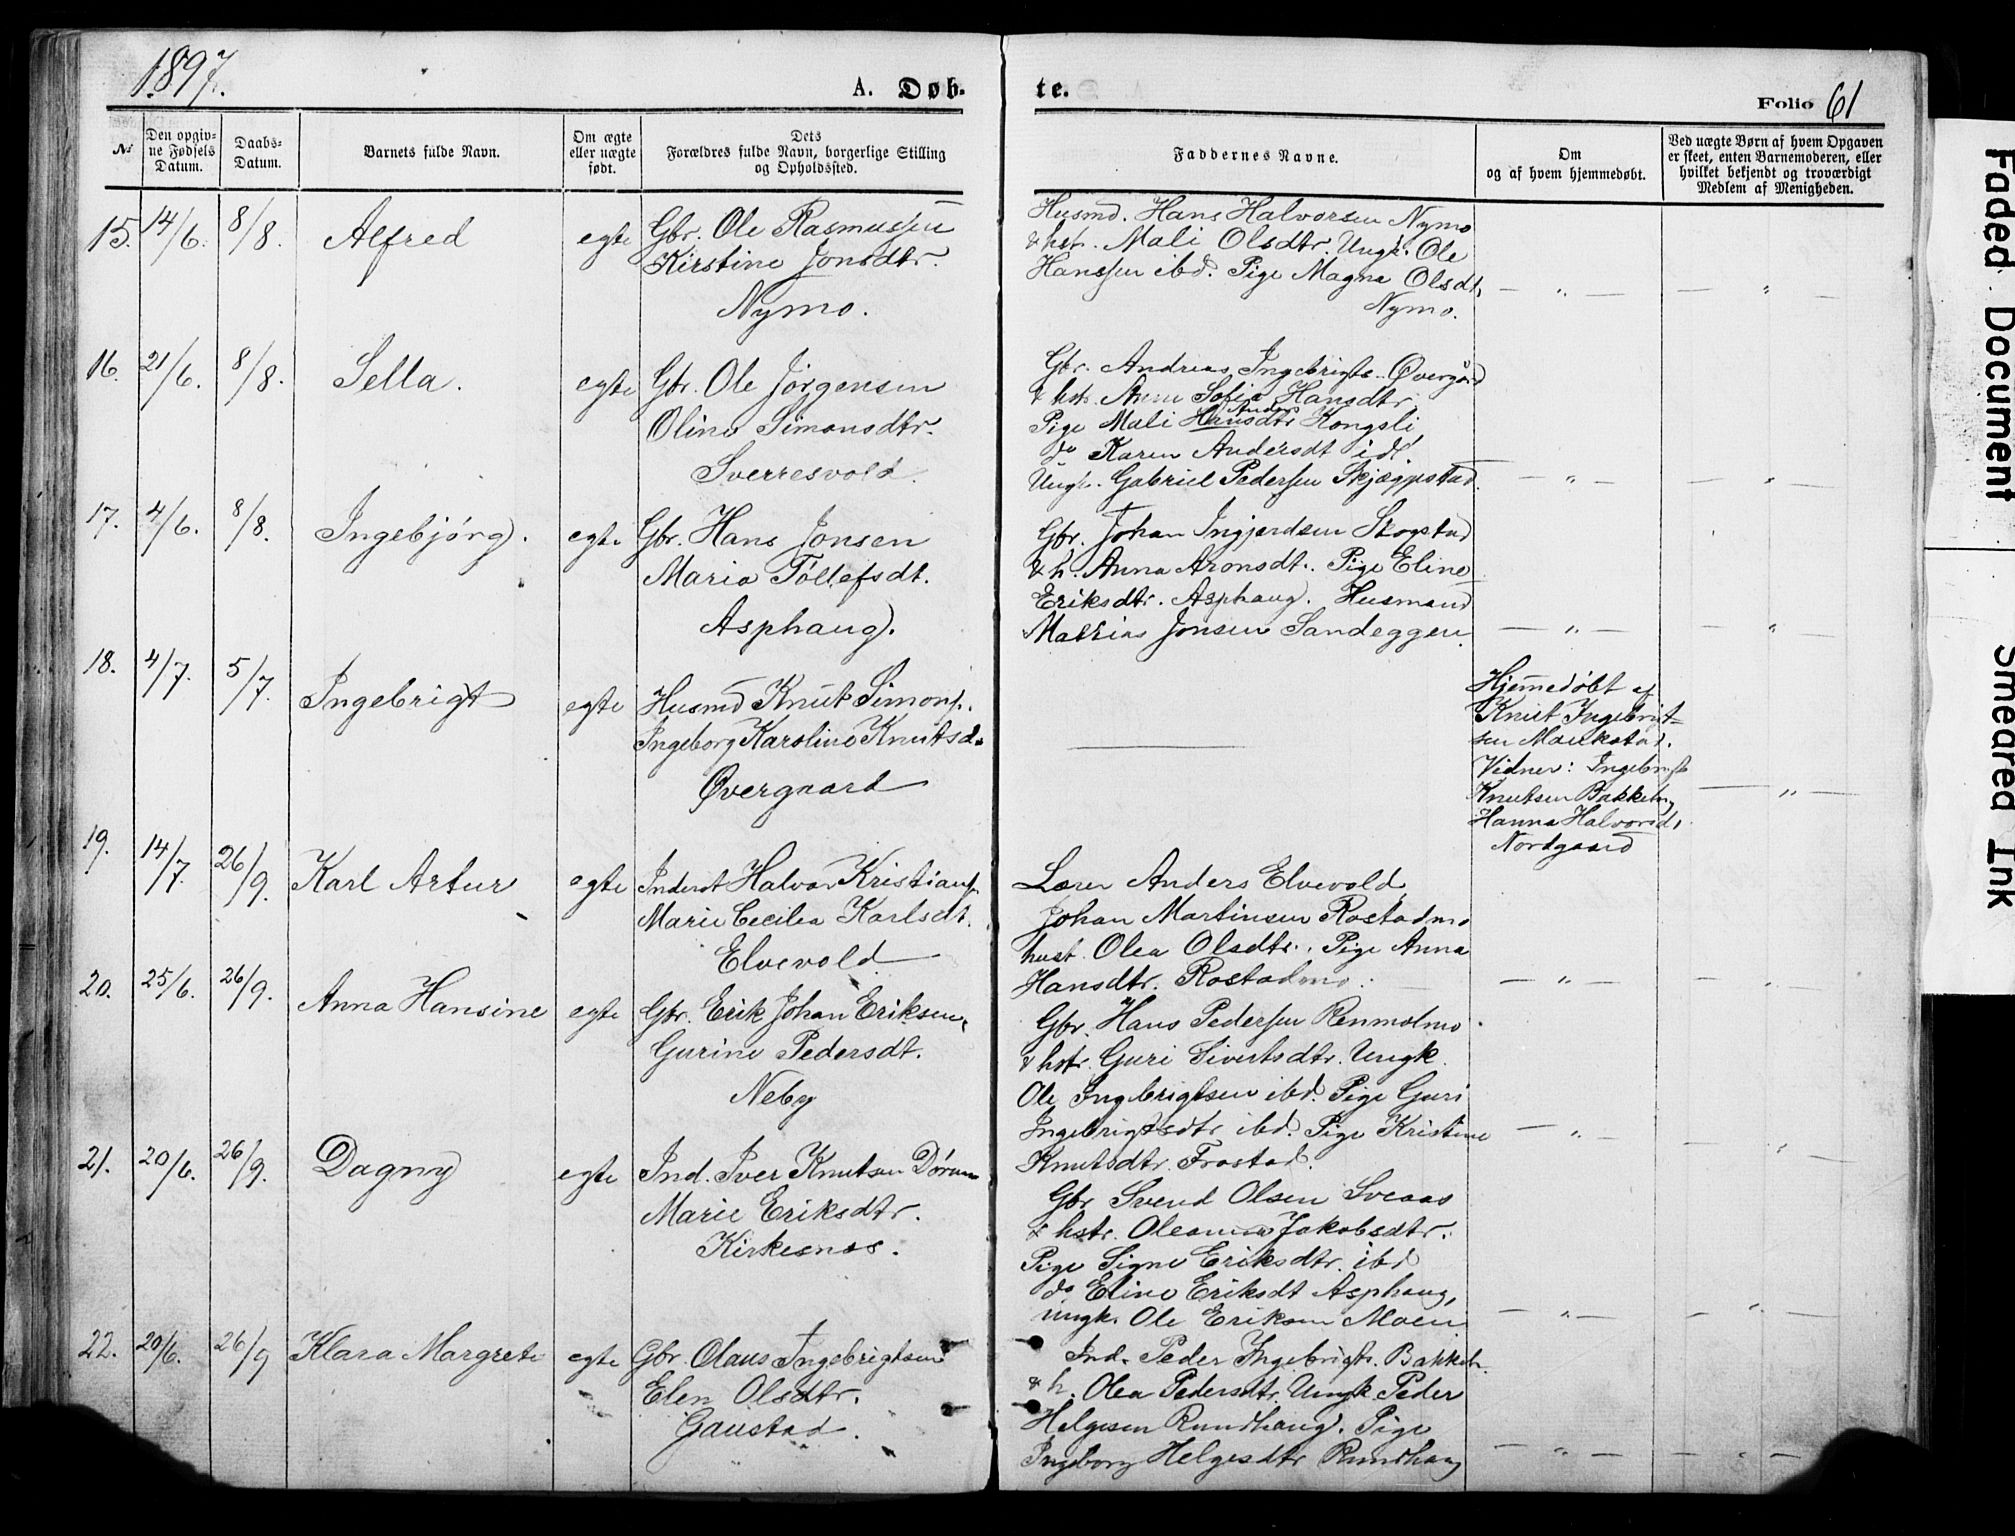 1897.
A. Døb-
te.
Folio 61
№
Den opgiv-
ne Fødsels
Datum.
Daabs-
Datum.
Barnets fulde Navn.
Om ægte
eller uægte
født.
Dets
Forældres fulde Navn, borgerlige Stilling
og Opholdssted.
Faddernes Navne.
Om
og af hvem hjemmedøbt.
Ved uægte Børn af hvem Opgaven
er skeet, enten Barnemoderen, eller
hvilket bekjendt og troværdigt
Medlem af Menigheden.
15. 14/6. 8/8. Alfred egte
Gbr. Ole Rasmussen
Kirstine Jonsdtr.
Nymo.
Husmd. Hans Halvorsen Nymo
& hst. Mali Olsdtr. Ungk. Ole
Hanssen ibd. Pige Magna Olsdt.
Nymo.
— „ — — „ —
16. 21/6. 8/8. Sella. egte
Gbr. Ole Jørgensen
Oline Simonsdtr.
Sverresvold.
Gbr. Andreas Ingebrigts. Øvergård
& hstr. Anne Sofie Hansdtr.
Anders
Pige Mali Hansdtr Kongsli
do Karen Andersdt id
Ungk. Gabriel Pedersen Skjæggestad.
— „ — — „ —
17. 4/6. 8/8. Ingebjørg. egte
Gbr. Hans Jonsen
Maria Tollefsdt.
Asphaug.
Gbr. Johan Ingjerdsen Skogstad
& h. Anna Aronsdt. Pige Eline
Eriksdtr. Asphaug. Husmand
Mathias Jonsen Sandeggen.
— „ — — „ —
18. 4/7. 5/7. Ingebrigt egte
Husmd Knut Simons.
Ingeborg Karoline Knutsd.
Øvergaard
Hjemmedøbt af
Knut Ingebrigt-
sen Moukstad.
Vidner: Ingebrigt
Knutsen Bakkehug
Hanna Halvorsd.
Nordgaard
— „ —
19. 14/7. 26/9. Karl Artur egte
Inderst Halvor Kristians.
Marie Cecilia Karlsdt.
Elvevold
Lærer Anders Elvevold
Johan Martinsen Rostadmo
hust. Olea Olsdtr. Pige Anna
Hansdtr. Rostadmo.
— „ — — „ —
20. 25/6. 26/9. Anna Hansine egte
Gbr. Erik Johan Eriksen,
Gurine Pedersdt.
Neby
Gbr. Hans Pedersen Renmolmo
& hstr. Guri Sivertsdtr. Ungk.
Ole Ingebrigtsen ibd. Pige Guri
Ingebrigtsdtr ibd. Pige Kristine
Knutsdtr. Frostad.
— „ — — „ —
21. 20/6. 26/9. Dagny egte
Ind. Iver Knutsen Dørum
Marie Eriksdtr.
Kirkesnes.
Gbr Svend Olsen Sveaas
& hstr. Oleanna Jakobsdtr.
Pige Signe Eriksdtr. ibd
do Eline Eriksdt Asphaug,
ungk. Ole Eriksen Moen
— „ — — „ —
22. 20/6. 26/9 Klara Margrete egte
Gbr. Olaus Ingebrigtsen
Elen Olsdtr.
Gaustad.
Ind. Peder Ingebrigts. Bakkeh.
& h. Olea Pedersdtr. Ungk. Peder
Helgesen Rundhaug. Pige
Ingeborg Helgesdtr Rundhaug
— „ — — „ —
Faded Document
Smeared Ink